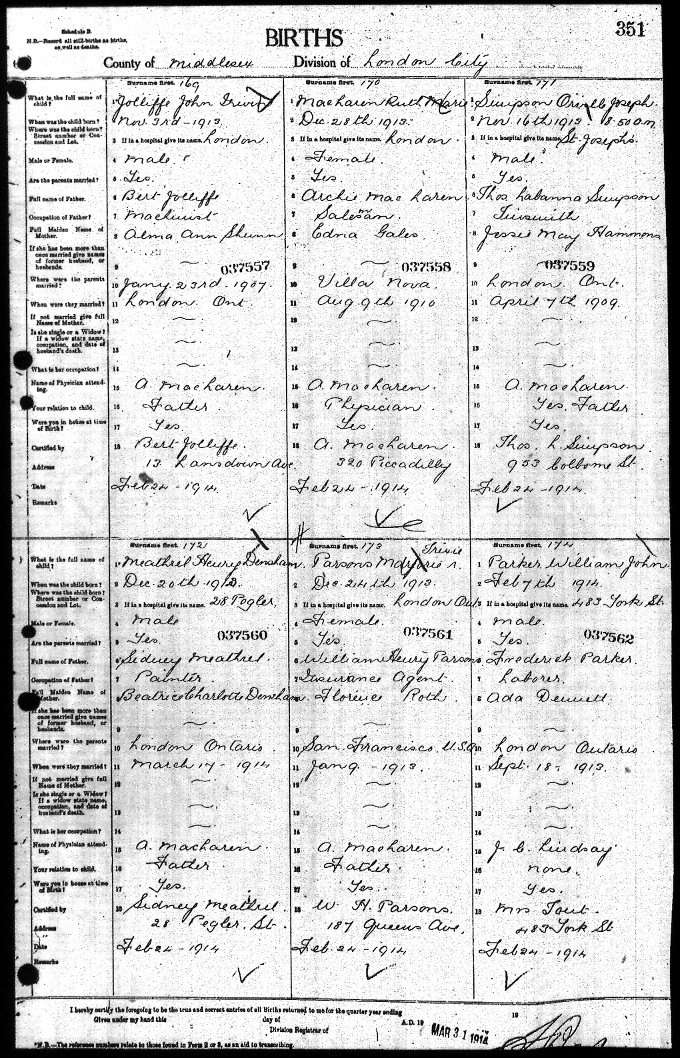 Schedule B.
N.B.—Record all still-births as births, as well as deaths.
BIRTHS
351
County of Middlesex Division of London City
Surname first. 169
Surname first. 170
Surname first. 171
What is the full name of child?
1 Jolliffe John Irwin
1 MacLaren Ruth Marie
1 Simpson Orville Joseph
When was the child born?
2 Nov. 3rd - 1913.
2 Dec. 28th 1913.
2 Nov. 16th 1913 8:50 am
Where was the child born? Street number or Concession and Lot.
3 If in a hospital give its name. London.
3 If in a hospital give its name. London.
3 If in a hospital give its name. St. Joseph's.
Male or Female.
4 Male
4 Female.
4 Male.
Are the parents married?
5 Yes.
5 Yes.
5 Yes.
Full name of Father.
6 Bert Jolliffe
6 Archie MacLaren
6 Thos. Labanna Simpson
Occupation of Father?
7 Machinist
7 Salesman.
7 Tinsmith
Full Maiden Name of Mother.
8 Alma Ann Shunn
8 Edna Gales.
8 Jessie May Hammons
If she has been more than once married give names of former husband, or husbands.
9
9
9
037557
037558
037559
Where were the parents married?
10 Jany. 23rd - 1907.
10 Villa Nova.
10 London. Ont.
When were they married?
11 London Ont.
11 Aug 9th 1910
11 April 7th 1909.
If not married give full Name of Mother.
12
12
12
Is she single or a Widow? If a widow state name, occupation, and date of husband's death.
13
13
13
What is her occupation?
14
14
14
Name of Physician attending.
15 A. MacLaren.
15 A. MacLaren.
15 A. MacLaren
Your relation to child.
16 Father
16 Physician
16 Yes. Father
Were you in house at time of Birth?
17 Yes.
17 Yes.
17 Yes.
Certified by
18 Bert Jolliffe.
18 A. MacLaren
18 Thos. L. Simpson
Address
13 Lansdown Ave.
320 Piccadilly
953 Colborne St.
Date
Feb 24 - 1914.
Feb 24 - 1914
Feb 24 - 1914.
Remarks
Surname first. 172
Surname first. 173
Surname first. 174
What is the full name of child?
1 Meathrel Henry Densham.
1 Parsons Marjorie Trixie
1 Parker William John
When was the child born?
2 Dec. 20th
2 Dec. 24th 1913.
2 Feb 7th 1914.
Where was the child born? Street number or Concession and Lot.
3 If in a hospital give its name. 28 Pegler.
3 If in a hospital give its name. London Ont
3 If in a hospital give its name. 483 York St.
Male or Female.
4 Male
4 Female.
4 Male.
Are the parents married?
5 Yes.
5 Yes.
5 Yes.
037560
037561
037562
Full name of Father.
6 Sidney Meathrel.
6 William Henry Parsons
6 Frederick Parker.
Occupation of Father?
7 Painter.
7 Insurance Agent.
7 Laborer.
Full Maiden Name of Mother.
8 Beatrice Charlotte Densham
8 Florence Roth.
8 Ada Dewett
If she has been more than once married give names of former husband, or husbands.
9
9
9
Where were the parents married?
10 London Ontario
10 San. Francisco. U.S.A.
10 London Ontario
When were they married?
11 March 17 - 1914
11 Jan 9 - 1913.
11 Sept. 18 - 1913.
If not married give full Name of Mother.
12
12
12
Is she single or a Widow? If a widow state name, occupation, and date of husband's death.
13
13
13
What is her occupation?
14
14
14
Name of Physician attending.
15 A. MacLaren.
15 A. MacLaren.
15 J. C. Lindsay
Your relation to child.
16 Father.
16 Father.
16 none.
Were you in house at time of Birth?
17 Yes.
17 Yes.
17 Yes.
Certified by
18 Sidney Meathrel.
18 W. H. Parsons.
18 Mrs Tout.
Address
28 Pegler St.
187 Queens Ave.
483 York St
Date
Feb 24 - 1914
Feb. 24 - 1914
Feb 24 - 1914
Remarks
I hereby certify the foregoing to be the true and correct entries of all Births returned to me for the quarter year ending 19
Given under my hand this day of A.D. 19 MAR 31 1914
Division Registrar of
N.B.—The reference numbers relate to those found in Form 2 or 3, as an aid to transcribing.